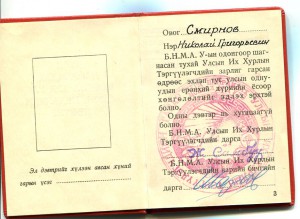 Овог Смирнов
Нэр Николай Григорьевич
Б.Н.М.А. У-ын одонгоор шаг-
насан тухай Улсын Их Хурлын
Тэргүүлэгчдийн зарлиг гарсан
өдрөөс эхлэн тус улсын одну-
удын ерөнхий дүрмийн ёсоор
хөнгөлөлтийг эдлэх эрхтэй
болно.
Одны дэвтэр нь хугацаагүй
болно.
Б.Н.М.А. Улсын Их Хурлын
Тэргүүлэгчдийн дарга
Б.Н.М.А. Улсын Их Хурлын
Тэргүүлэгчдийн нарийн бичгийн
дарга
3
Энэ дэвтрийг хүлээн авсан хүний
гарын үсэг